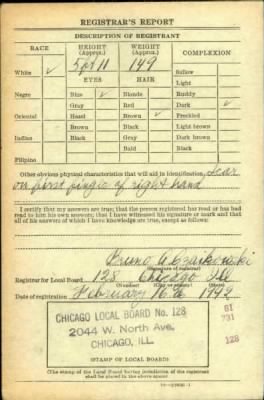 REGISTRAR'S REPORT
DESCRIPTION OF REGISTRANT
RACE HEIGHT (Approx.) WEIGHT (Approx.) COMPLEXION
White ✓ 5 for 11 149 Sallow
EYES HAIR Light
Negro Blue ✓ Blonde Ruddy
Gray Red Dark ✓
Oriental Hazel Brown ✓ Freckled
Brown Black Light brown
Indian Black Gray Dark brown
Bald Black
Filipino
Other obvious physical characteristics that will aid in identification Scar
on first finger of right hand
I certify that my answers are true; that the person registered has read or has had
read to him his own answers; that I have witnessed his signature or mark and that
all of his answers of which I have knowledge are true, except as follows:
Bruno A.
(Signature of registrar)
Registrar for Local Board 128 Chicago Ill
(Number) (City or county) (State)
Date of registration February 16th 1942
CHICAGO LOCAL BOARD No. 128
2044 W. North Ave.
CHICAGO, ILL.
61
731
128
(STAMP OF LOCAL BOARD)
(The stamp of the Local Board having jurisdiction of the registrant
shall be placed in the above space)